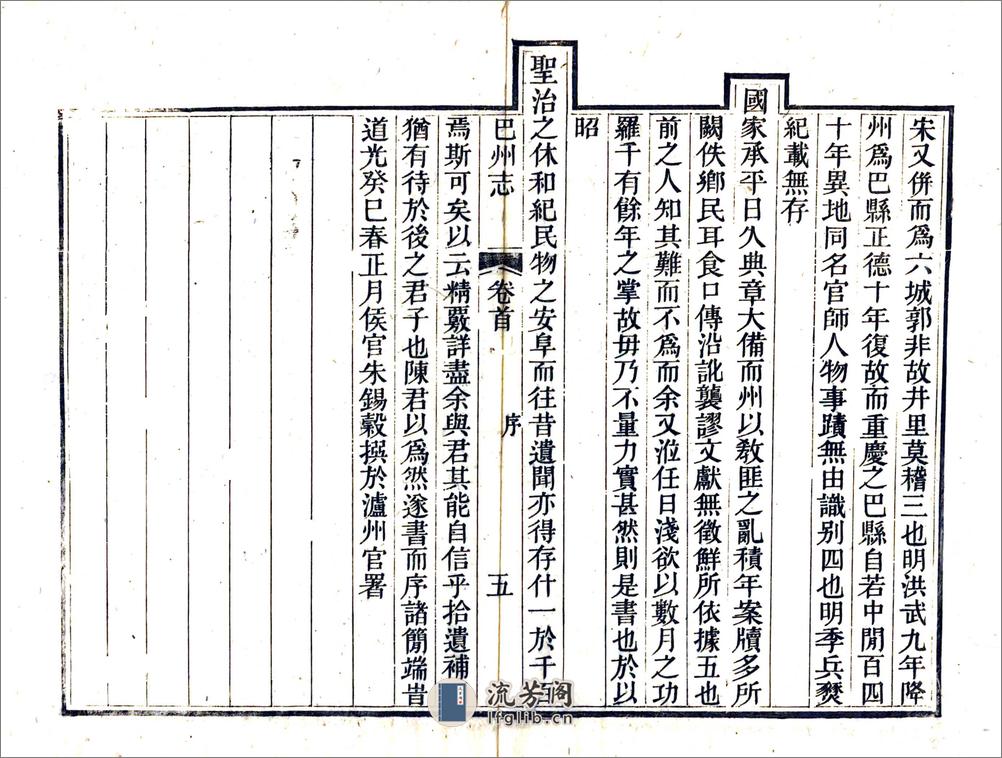 宋又併而爲六城郭非故井里莫稽三也明洪武九年降
州爲巴縣正德十年復故而重慶之巴縣自若中閒百四
十年異地同名官師人物事蹟無由識别四也明季兵燹
紀載無存
國家承平日久典章大備而州以敎匪之亂積年案牘多所
闕佚鄉民耳食口傳沿訛襲謬文獻無徵鮮所依據五也
前之人知其難而不爲而余又涖任日淺欲以數月之功
羅千有餘年之掌故毋乃不量力實甚然則是書也於以
昭
聖治之休和紀民物之安阜而往昔遺聞亦得存什一於千
巴州志 卷首 序 五
焉斯可矣以云精覈詳盡余與君其能自信乎拾遺補
猶有待於後之君子也陳君以爲然遂書而序諸簡端旹
道光癸巳春正月侯官朱錫穀撰於瀘州官署
流芳阁
lfglib.cn